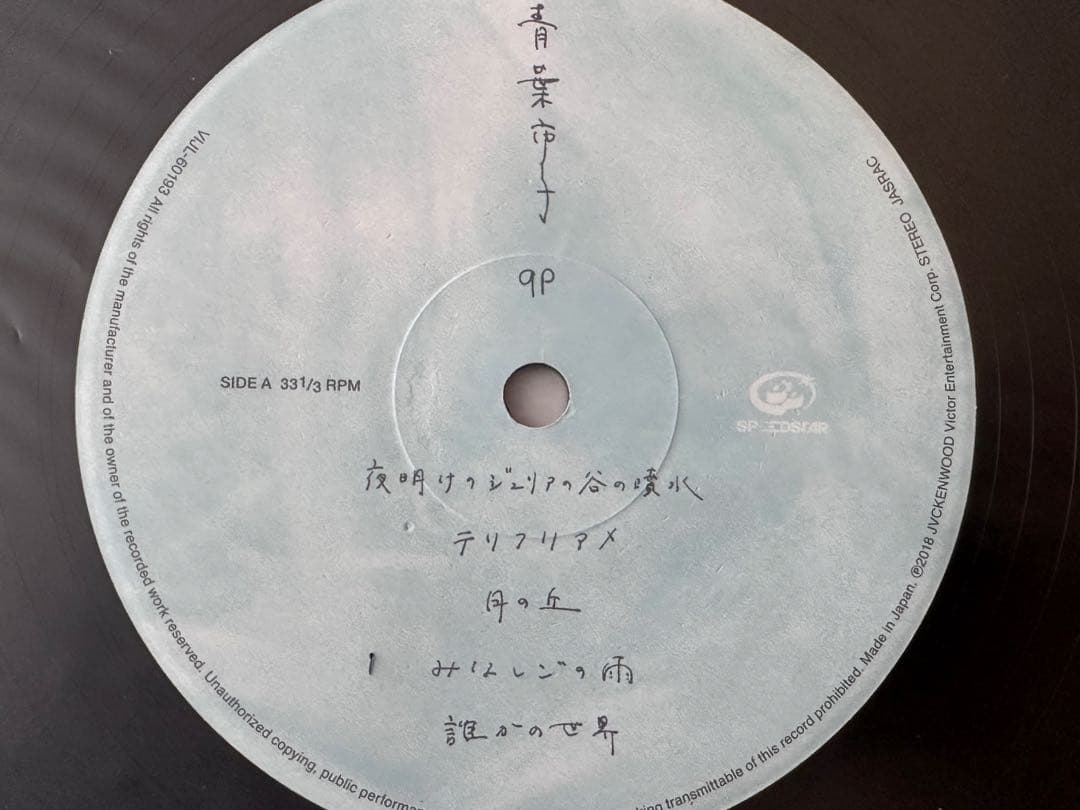 青葉市子
qp
SIDE A 33 1/3 RPM
SPEEDSTAR
夜明けのジュリアの谷の噴水
テリフリアメ
月の丘
みなしごの雨
誰かの世界
VIJL-60193 All rights of the manufacturer and of the owner of the recorded work reserved. Unauthorized copying, public performa
king transmittable of this record prohibited. Made in Japan. ℗2018 JVCKENWOOD Victor Entertainment Corp. STEREO JASRAC